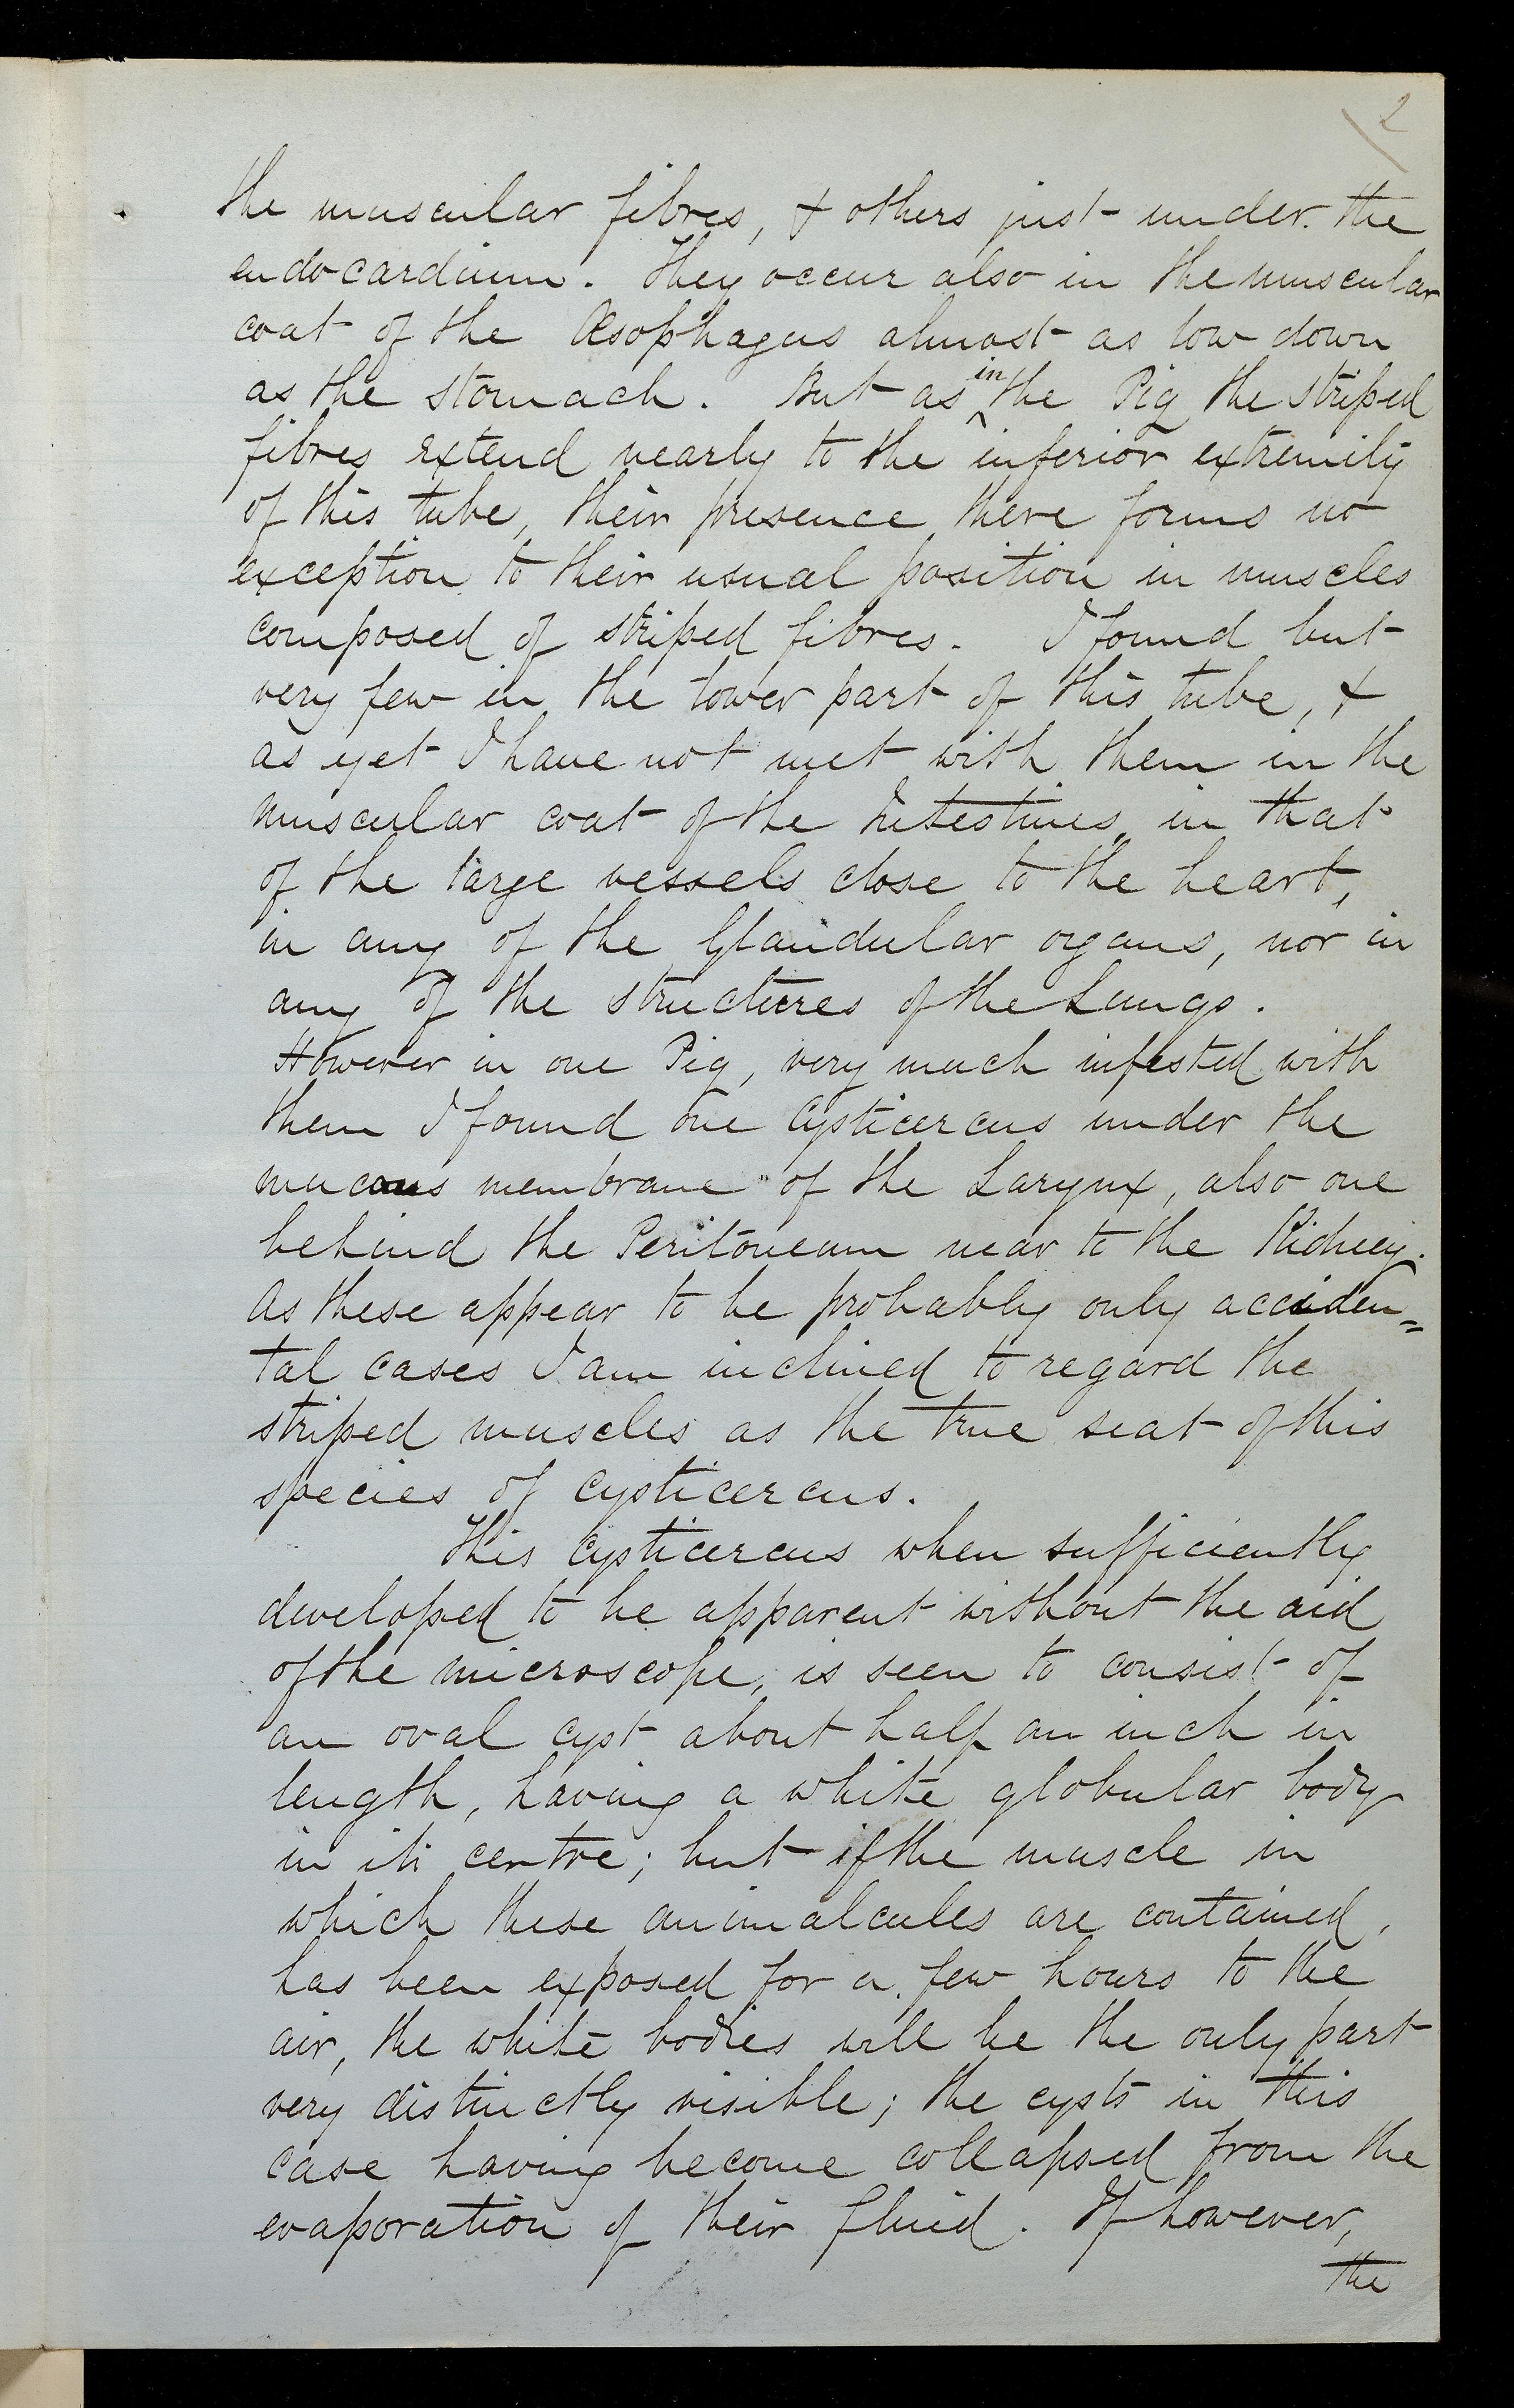 2
the muscular fibres, & others just under the
endocardium. They occur also in the muscular
coat of the Œsophagus almost as low down
as the stomach. But as in the Pig the striped
fibres extend nearly to the inferior extremity
of this tube, their presence there forms no
exception to their usual position in muscles
composed of striped fibres. I found but
very few in the lower part of this tube, &
as yet I have not met with them in the
muscular coat of the Intestines, in that
of the large vessels close to the heart,
in any of the Glandular organs, nor in
any of the structures of the Lungs.
However in one Pig, very much infested with
them I found one Cysticercus under the
mucous membrane of the Larynx, also one
behind the Peritoneum near to the Kidney.
As these appear to be probably only acciden=
tal cases I am inclined to regard the
striped muscles as the true seat of this
species of Cysticercus.
This Cysticercus when sufficiently
developed to be apparent without the aid
of the microscope, is seen to consist of
an oval cyst about half an inch in
length, having a white globular body
in its centre; but if the muscle in
which these animalcules are contained,
has been exposed for a few hours to the
air, the white bodies will be the only part
very distinctly visible; the cysts in this
case having become collapsed from the
evaporation of their fluid. If however,
the